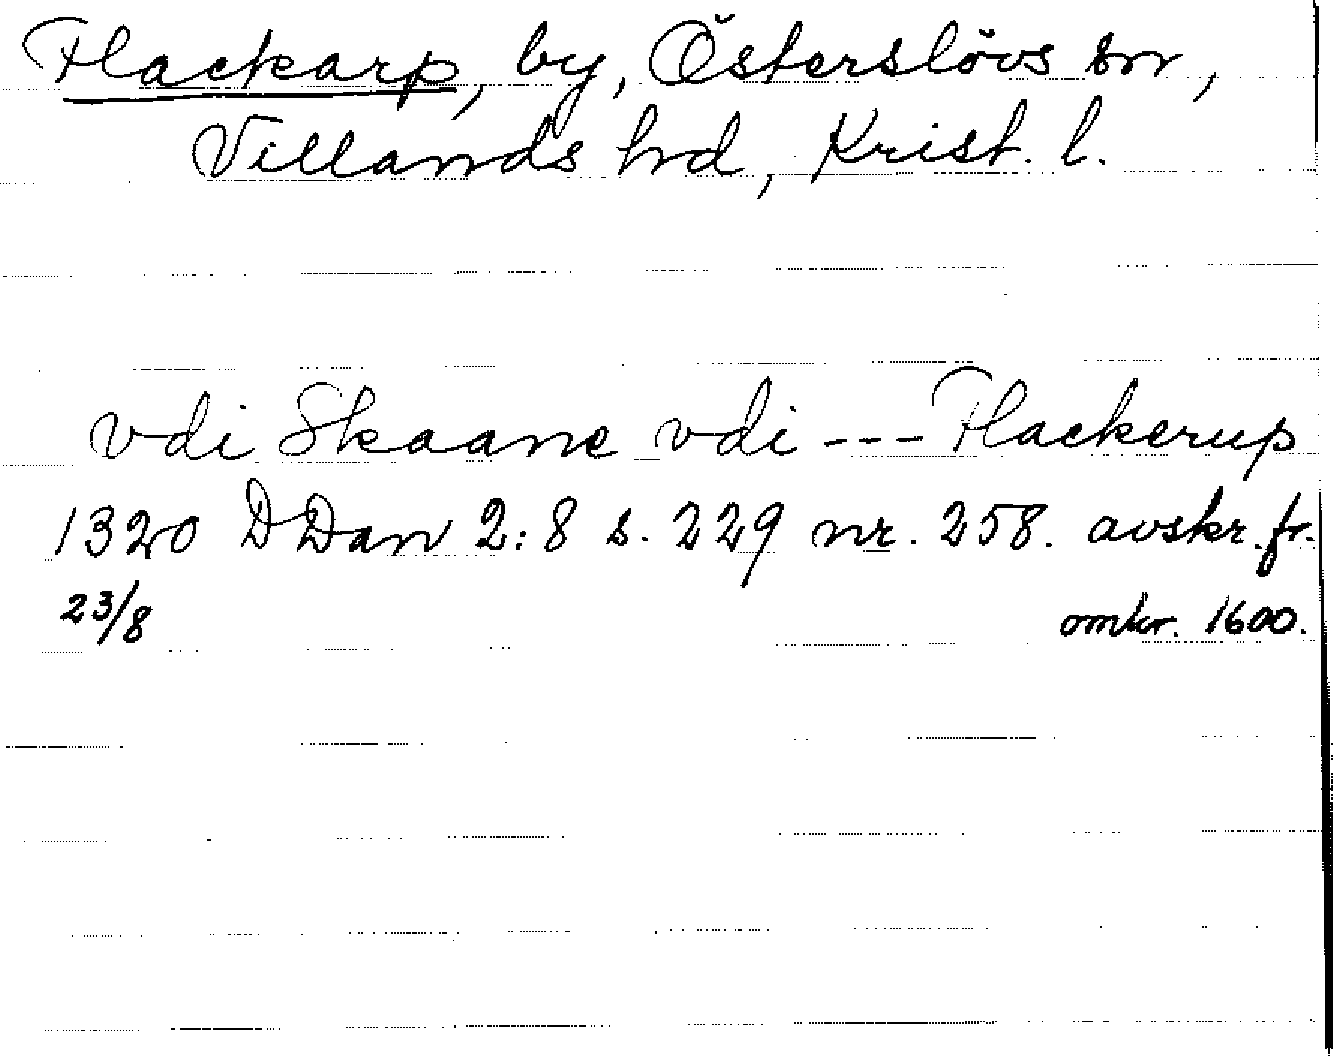 Flackarp, by, Österslövs sn,
Villands hrd, Krist. l.
vdi Skaane vdi --- Flackerup
1320 DDan 2:8 s. 229 nr. 258. avskr. fr.
23/8 omkr. 1600.